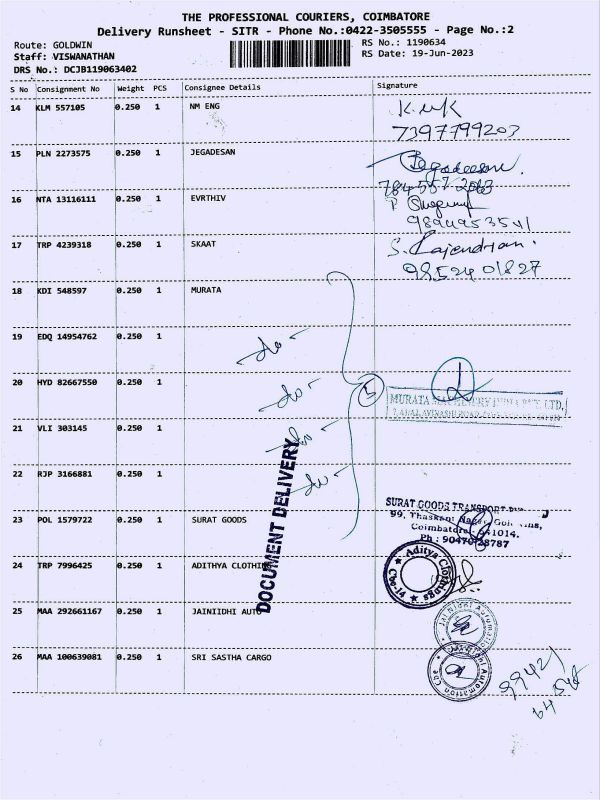 THE PROFESSIONAL COURIERS, COIMBATORE
Delivery Runsheet - SITR - Phone No.:0422-3505555 - Page No.:2
Route: GOLDWIN
Staff: VISWANATHAN
DRS No.: DCJB119063402
RS No.: 1190634
RS Date: 19-Jun-2023
S No Consignment No Weight PCS Consignee Details Signature
14 KLM 557105 0.250 1 NM ENG
7397799203
15 PLN 2273575 0.250 1 JEGADESAN
Jegadeesan.
16 NTA 13116111 0.250 1 EVRTHIV
9894953541
17 TRP 4239318 0.250 1 SKAAT S. Rajendran.
9852401827
18 KDI 548597 0.250 1 MURATA
19 EDQ 14954762 0.250 1
do
20 HYD 82667550 0.250 1
do
5
MURATA
21 VLI 303145 0.250 1
do
22 RJP 3166881 0.250 1
do
DOCUMENT DELIVERY
23 POL 1579722 0.250 1 SURAT GOODS
SURAT GOODS TRANSPORT
99,
Coimbatore
Ph : 90470 28787
24 TRP 7996425 0.250 1 ADITHYA CLOTHING
Aditya Clothings
Cbe-14
25 MAA 292661167 0.250 1 JAINIIDHI AUTO
Jai Nidhi Automation
26 MAA 100639081 0.250 1 SRI SASTHA CARGO
Jai Nidhi Automation
Cbe
99421